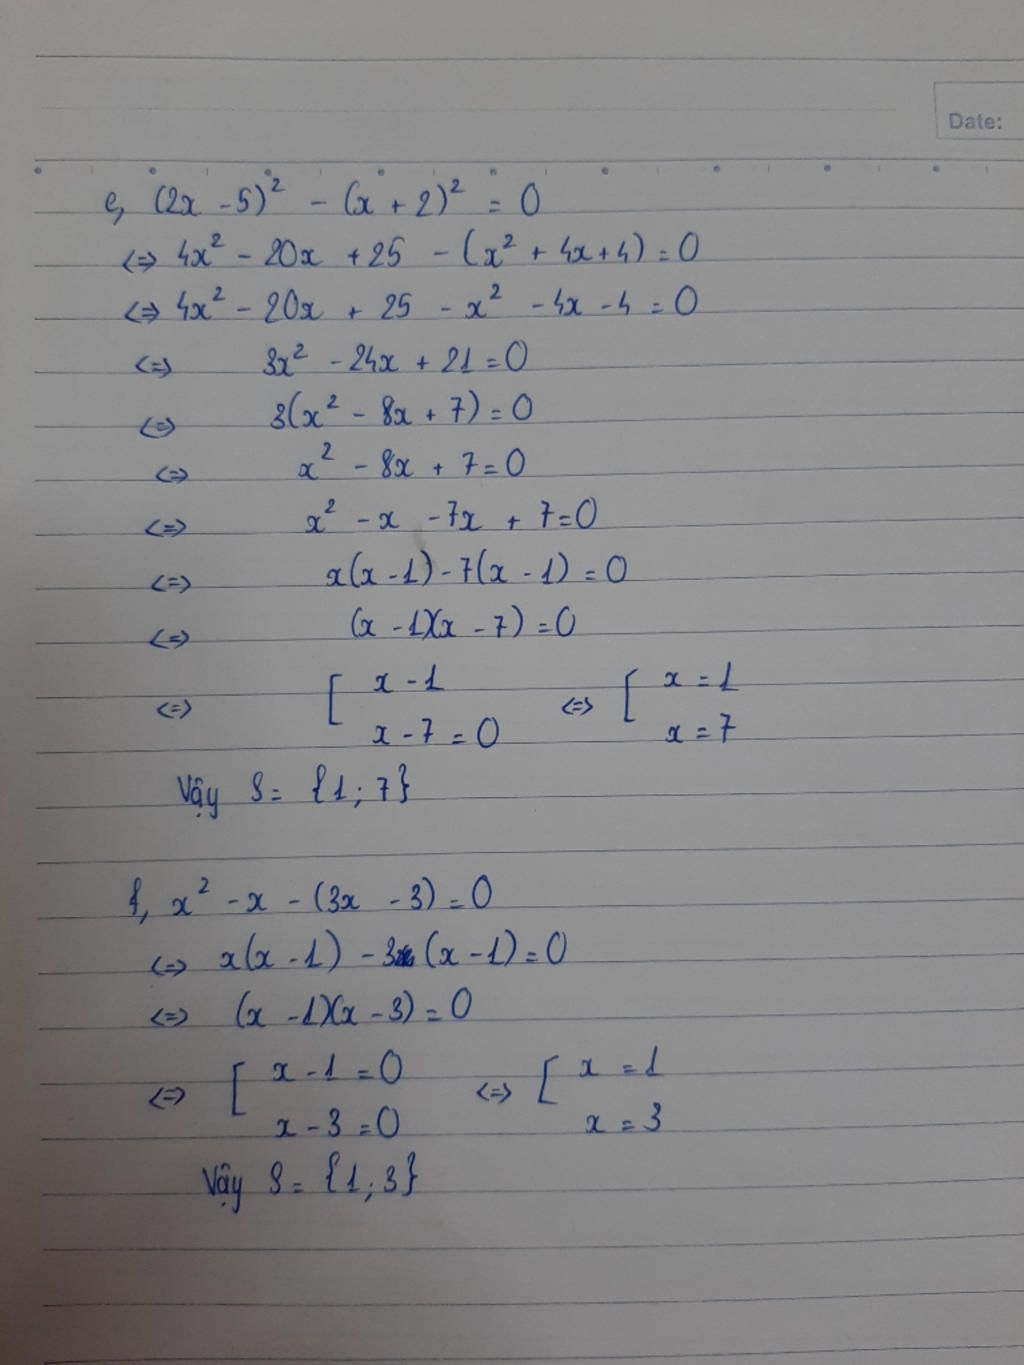 Date:
e, (2x - 5)² - (x + 2)² = 0
<=> 4x² - 20x + 25 - (x² + 4x + 4) = 0
<=> 4x² - 20x + 25 - x² - 4x - 4 = 0
<=> 3x² - 24x + 21 = 0
<=> 3(x² - 8x + 7) = 0
<=> x² - 8x + 7 = 0
<=> x² - x - 7x + 7 = 0
<=> x(x - 1) - 7(x - 1) = 0
<=> (x - 1)(x - 7) = 0
<=> [ x - 1 <=> [ x = 1
x - 7 = 0 x = 7
Vậy S = {1; 7}
f, x² - x - (3x - 3) = 0
<=> x(x - 1) - 3 (x - 1) = 0
<=> (x - 1)(x - 3) = 0
<=> [ x - 1 = 0 <=> [ x = 1
x - 3 = 0 x = 3
Vậy S = {1; 3}